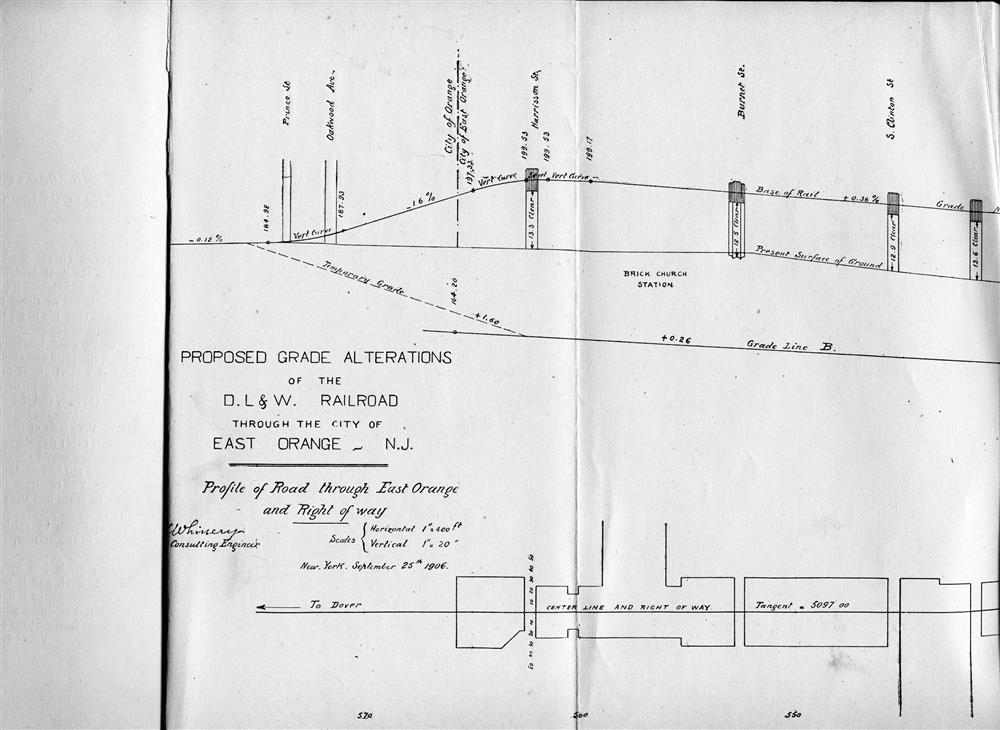 Prince St
Oakwood Ave.
City of Orange
City of East Orange
Harrisson St.
Burnet St.
S. Clinton St
184.92
187.93
197.33
199.53
199.53
199.17
- 0.12 %
Vert Curve
-1.6 %
Vert Curve
Level
Vert Curve
Base of Rail
+ 0.36 %
Grade
13.3 Clear
12.5 Clear
12.9 Clear
13.6 Clear
Present Surface of Ground
BRICK CHURCH
STATION
Temporary Grade
164.20
+1.60
+0.26
Grade Line B.
PROPOSED GRADE ALTERATIONS
OF THE
D. L & W. RAILROAD
THROUGH THE CITY OF
EAST ORANGE ~ N.J.
Profile of Road through East Orange
and Right of way
Whinery
Consulting Engineer
Scales
Horizontal 1"=400 ft
Vertical 1"= 20 "
New. York. September 25th 1906.
To Dover
50 40 30 20 10
CENTER LINE AND RIGHT OF WAY
10 20 30 40 50
Tangent = 5097.00
570
560
550